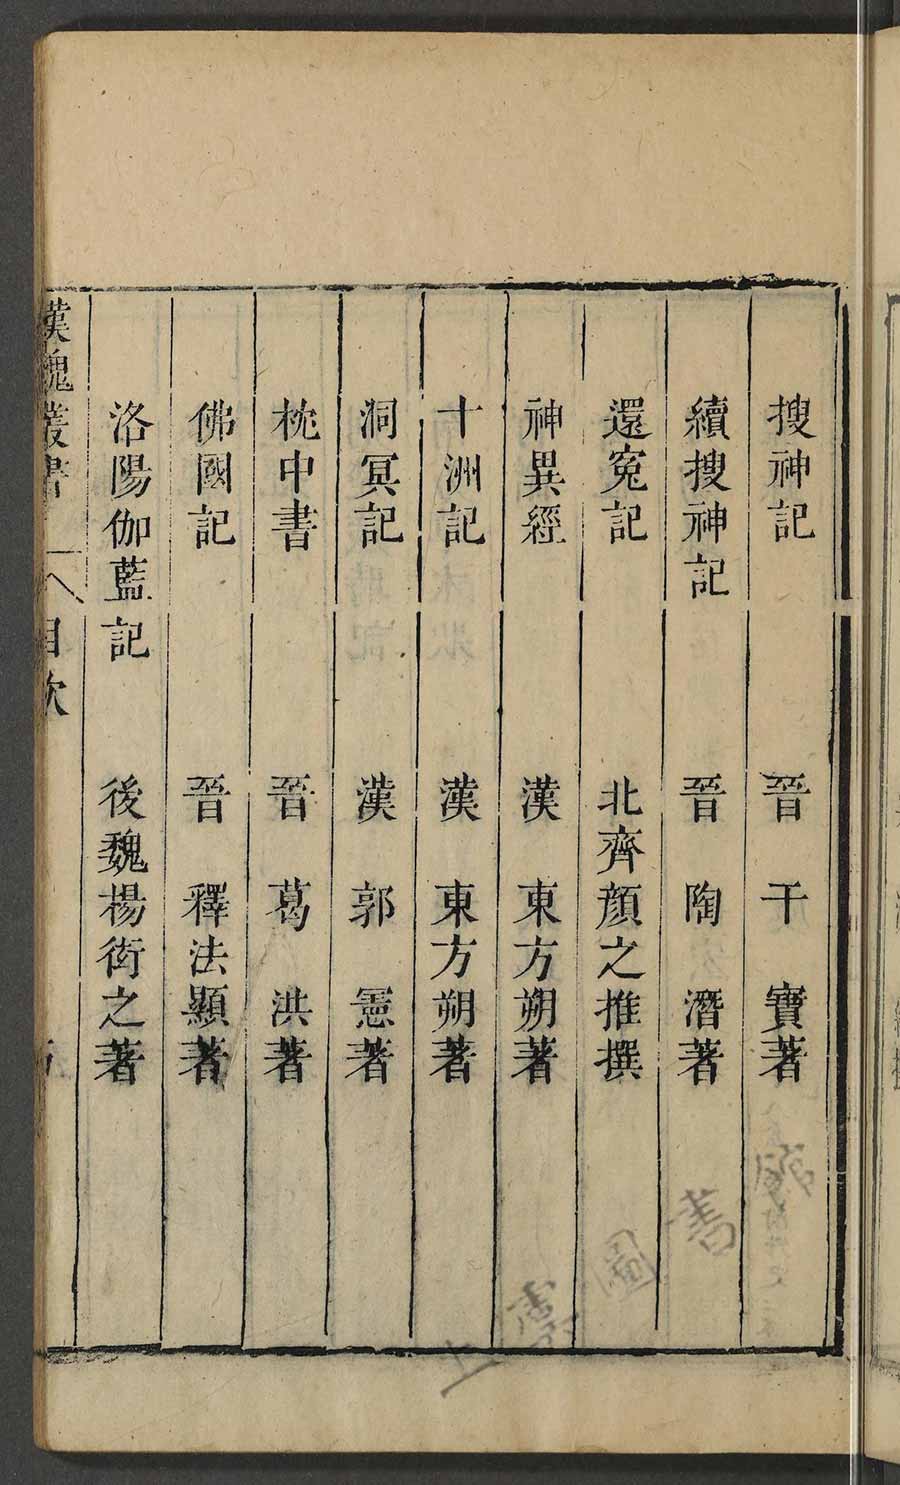 搜神記 晉 干 寶著
續搜神記 晉 陶 潛著
還寃記 北齊顔之推撰
神異經 漢 東方朔著
十洲記 漢 東方朔著
洞冥記 漢 郭 憲著
枕中書 晉 葛 洪著
佛國記 晉 釋法顯著
洛陽伽藍記 後魏楊衒之著
漢魏叢書 目次